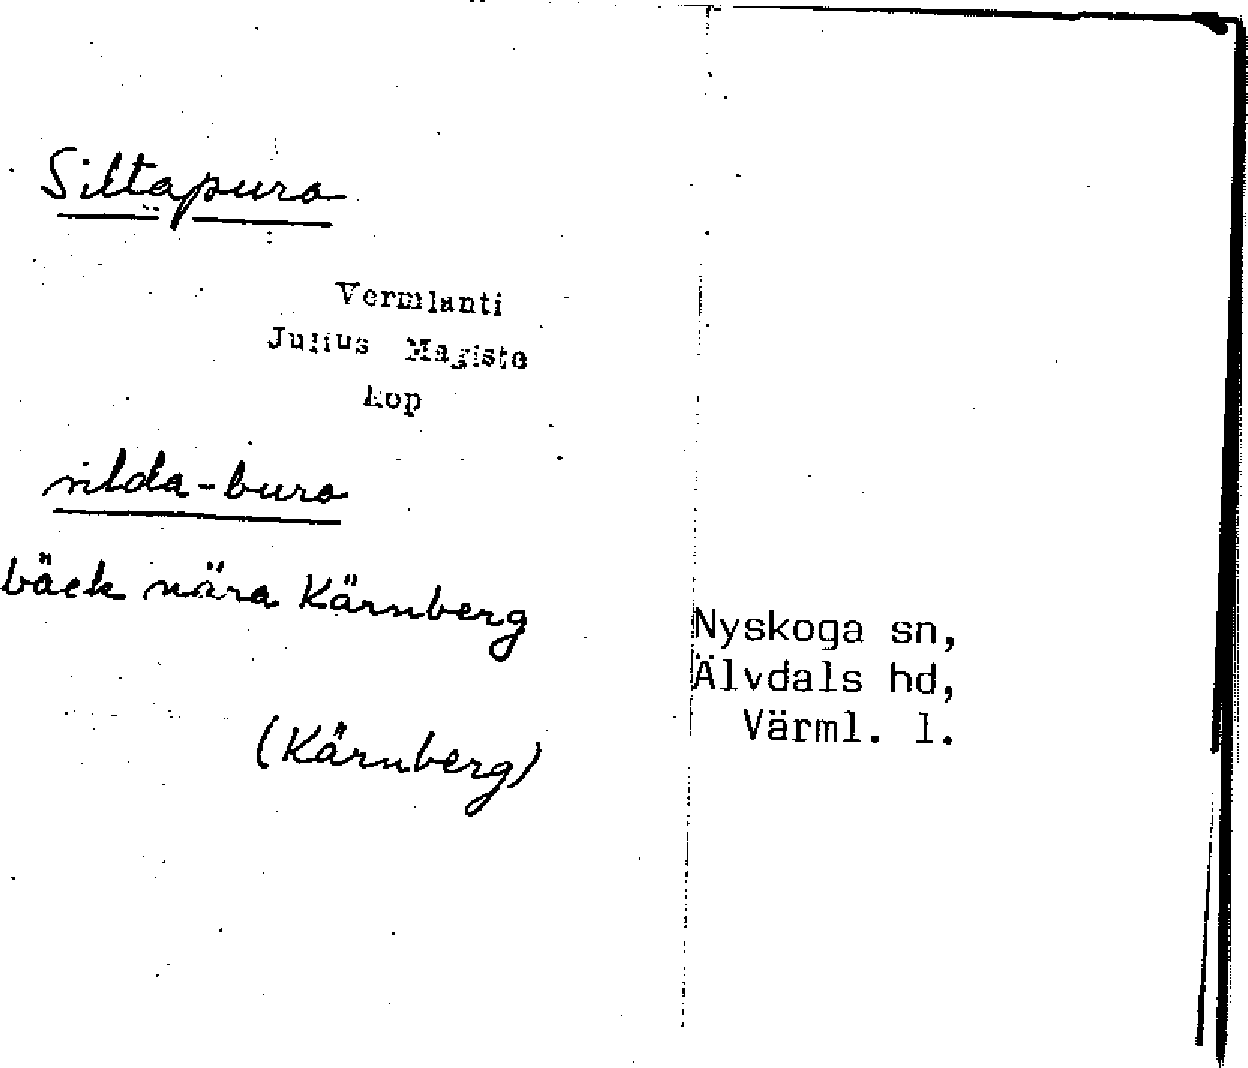 Siltapuro
Vermlanti
Julius Mägiste
kop
silda-buro
bäck nära Kärnberg
(Kärnberg)
Nyskoga sn,
Älvdals hd,
Värml. l.